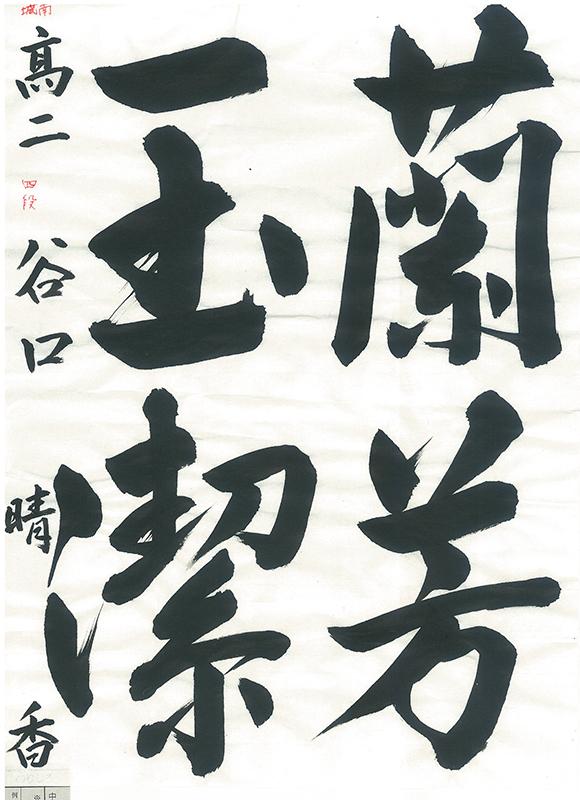 蘭芳
玉潔
城南
高二
四段
谷口
晴香